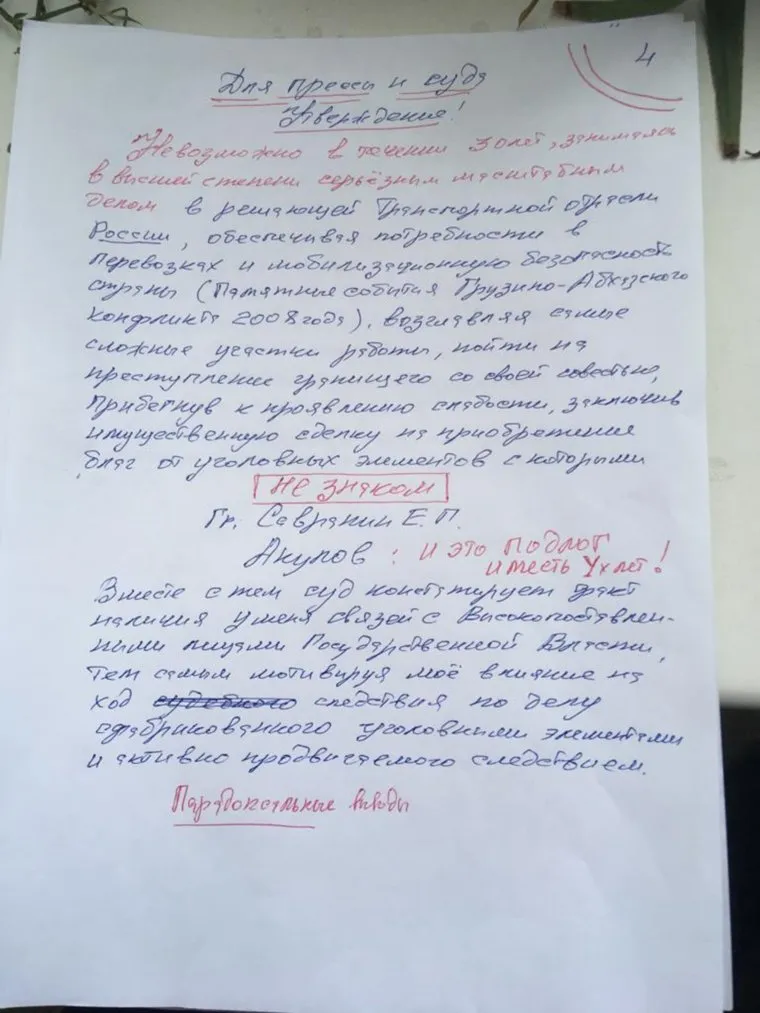 4
Для прессы и суда
Утверждение!
Невозможно в течении 30лет, занимаясь
в высшей степени серьёзным масштабным
делом в решающей Транспортной отрасли
России, обеспечивая потребности в
перевозках и мобилизационную безопасность
страны (Памятные события Грузино-Абхазского
конфликта 2008года), возглавляя самые
сложные участки работы, пойти на
преступление гранищего со своей совестью,
прибегнув к проявлению слабости, заключив
имущественную сделку на приобретение
благ от уголовных элементов с которыми
НЕ ЗНАКОМ
Гр. Саврянин Е.П.
Акулов : и это ПОДЛОГ
и месть Ух лет!
Вместе с тем суд констатирует факт
наличия у меня связей с Высокопоставлен-
ными лицами Государственной Власти,
тем самым мотивируя моё влияние на
ход судебного следствия по делу
сфабрикованного уголовными элементами
и активно продвигаемого следствием.
Парадоксальные выводы